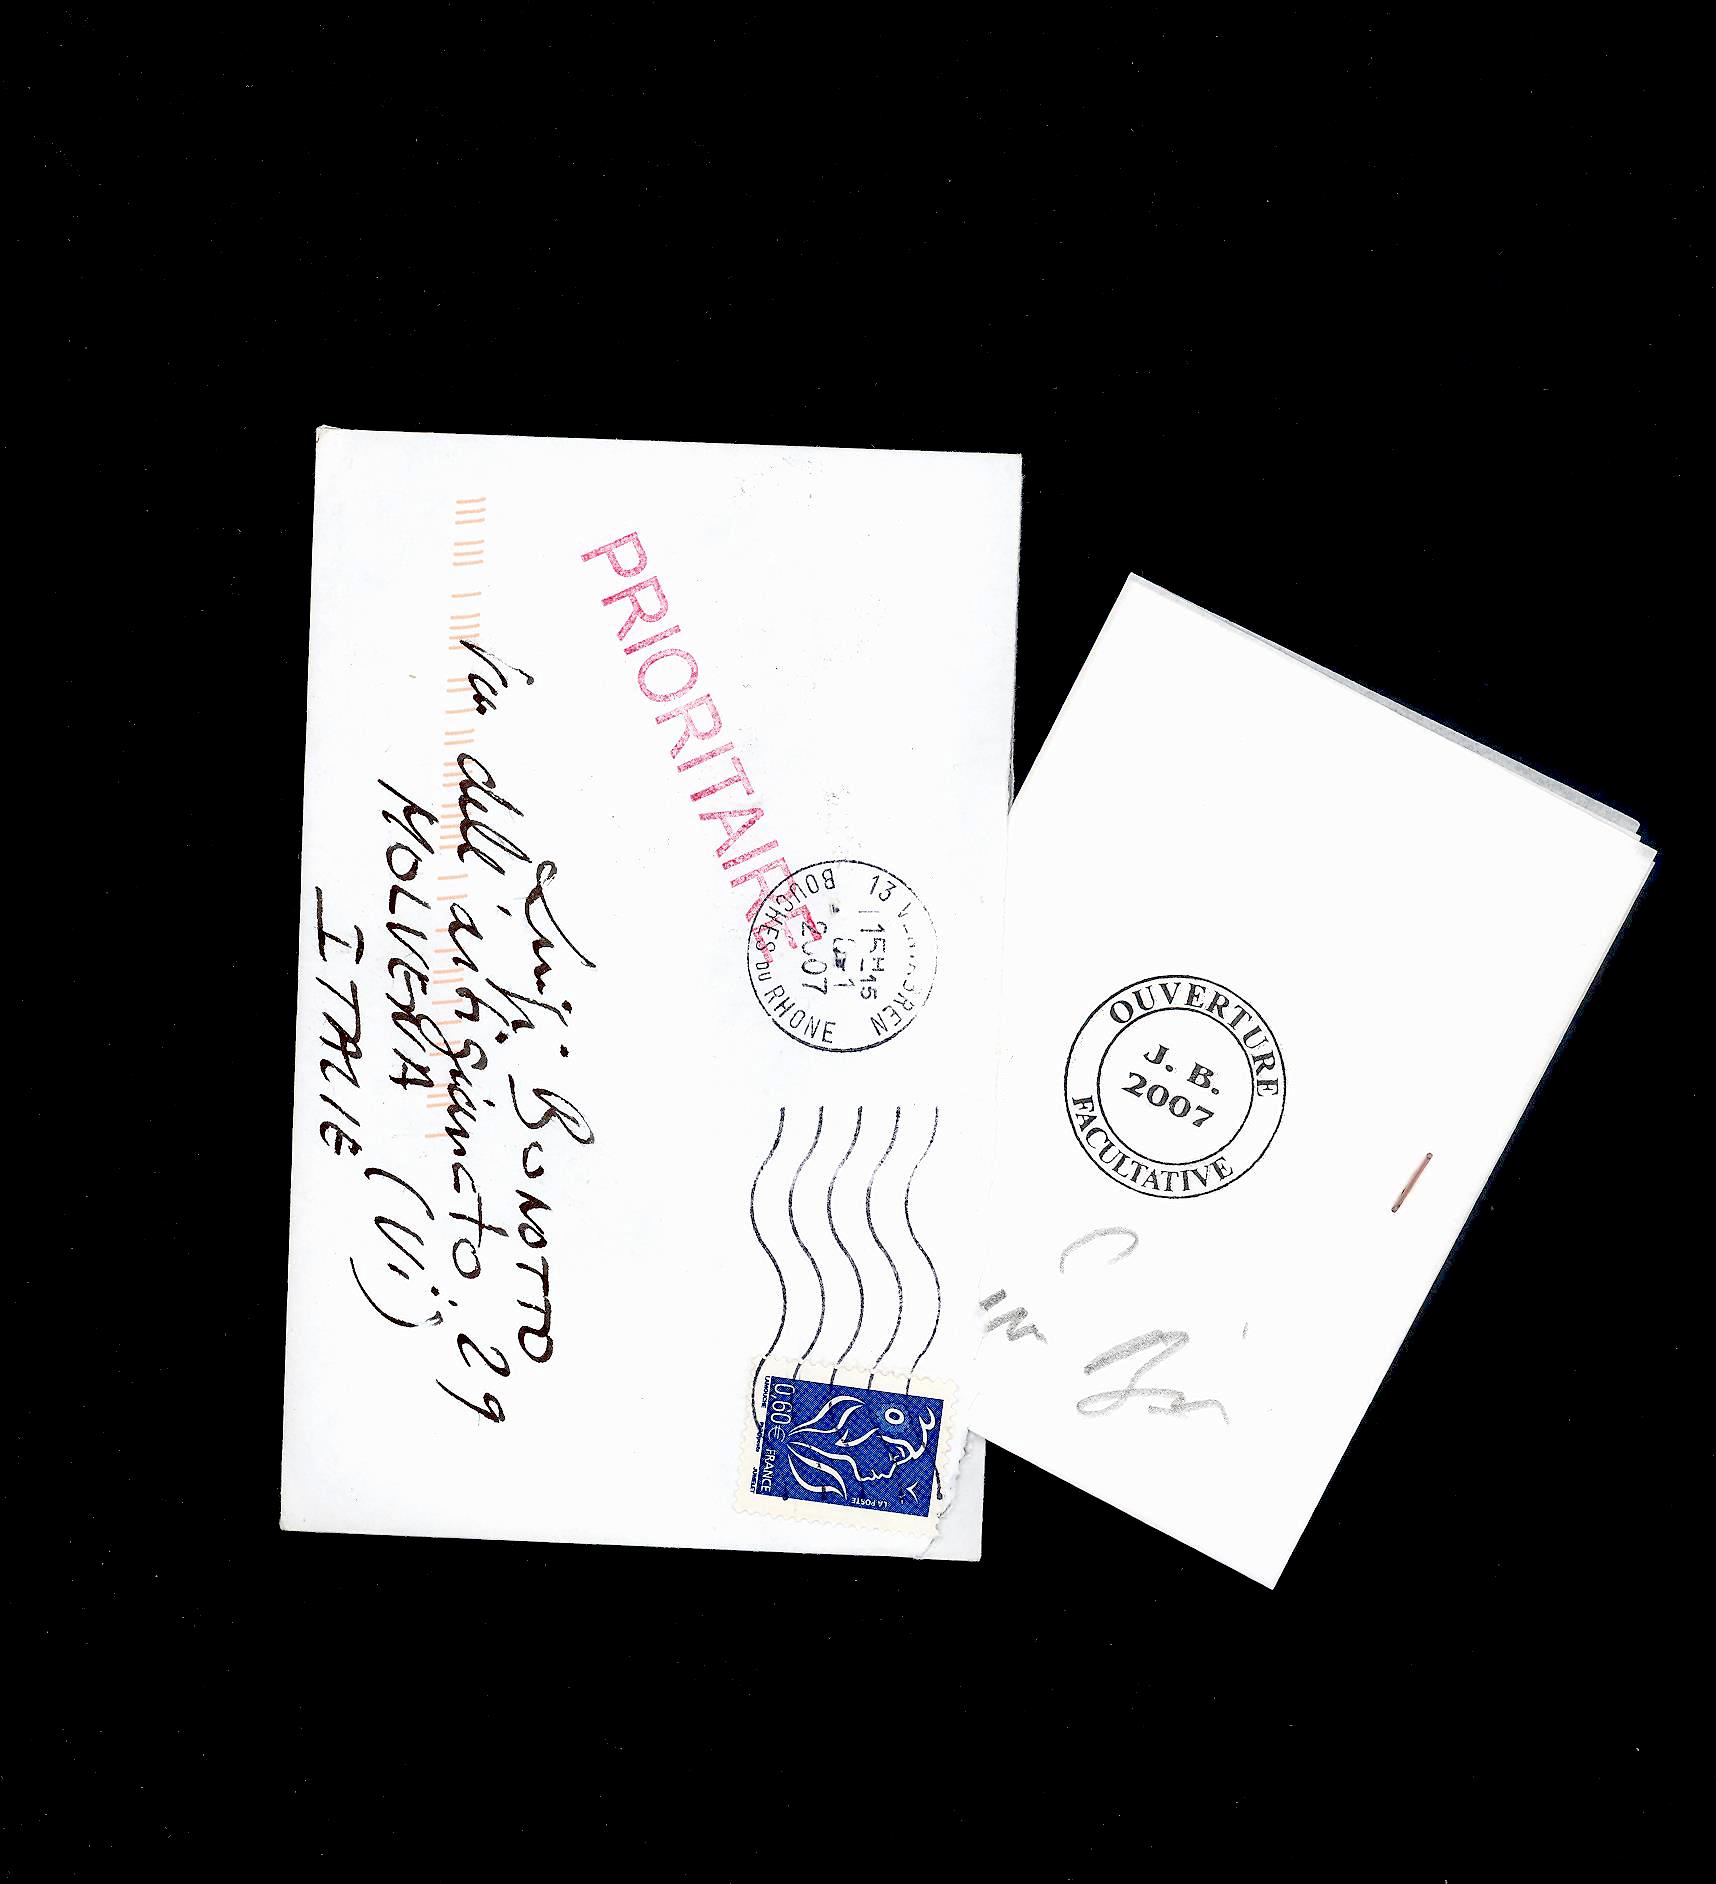 PRIORITAIRE
13
15H15
2007
BOUCHES DU RHONE
0,60€ FRANCE
LA POSTE
Luigi BONOTTO
Via dell'artigianato 29
MOLVENA (Vi)
ITALIE
OUVERTURE
J. B.
2007
FACULTATIVE